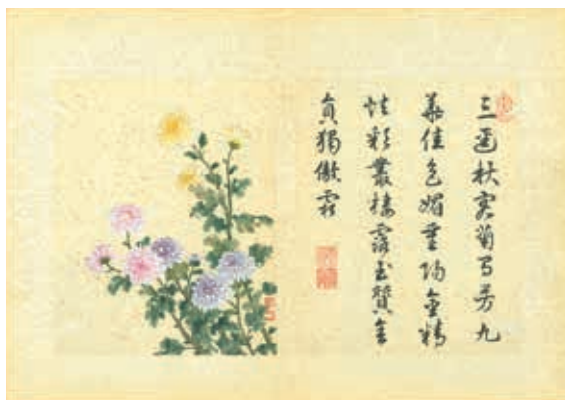 三逕秋容菊芳九
華佳色媚重陽金精
炫彩叢棲露玉質含
貞獨傲霜